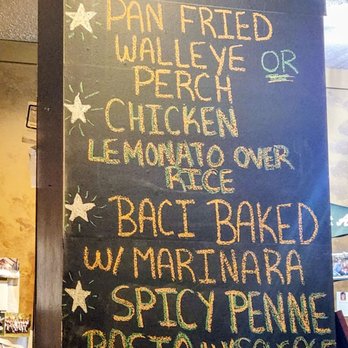 PAN FRIED
WALLEYE OR
PERCH
CHICKEN
LEMONATO OVER
RICE
BACI BAKED
W/ MARINARA
SPICY PENNE
PASTA W/